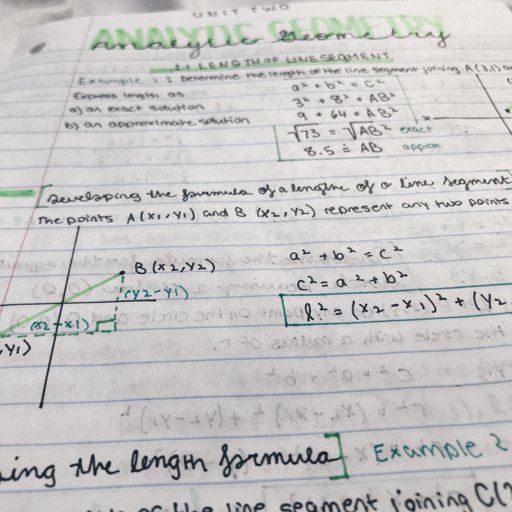 UNIT TWO
ANALYTIC GEOMETRY
Analytic Geometry
2.1 LENGTH OF LINE SEGMENT
Example 1: Determine the length of the line segment joining A(3,1) an
Express length as
a) an exact solution
b) an approximate solution
a² + b² = c²
3² + 8² = AB²
9 + 64 = AB²
√73 = √AB² exact
8.5 ≐ AB approx
Developing the formula of a length of a line segment
The points A(x1,y1) and B (x2,y2) represent any two points
B (x2,y2)
(y2-y1)
(x2-x1)
,y1)
a² + b² = c²
c² = a² + b²
l² = (x2-x1)² + (y2
ing the length formula] Example 2
the line segment joining C(